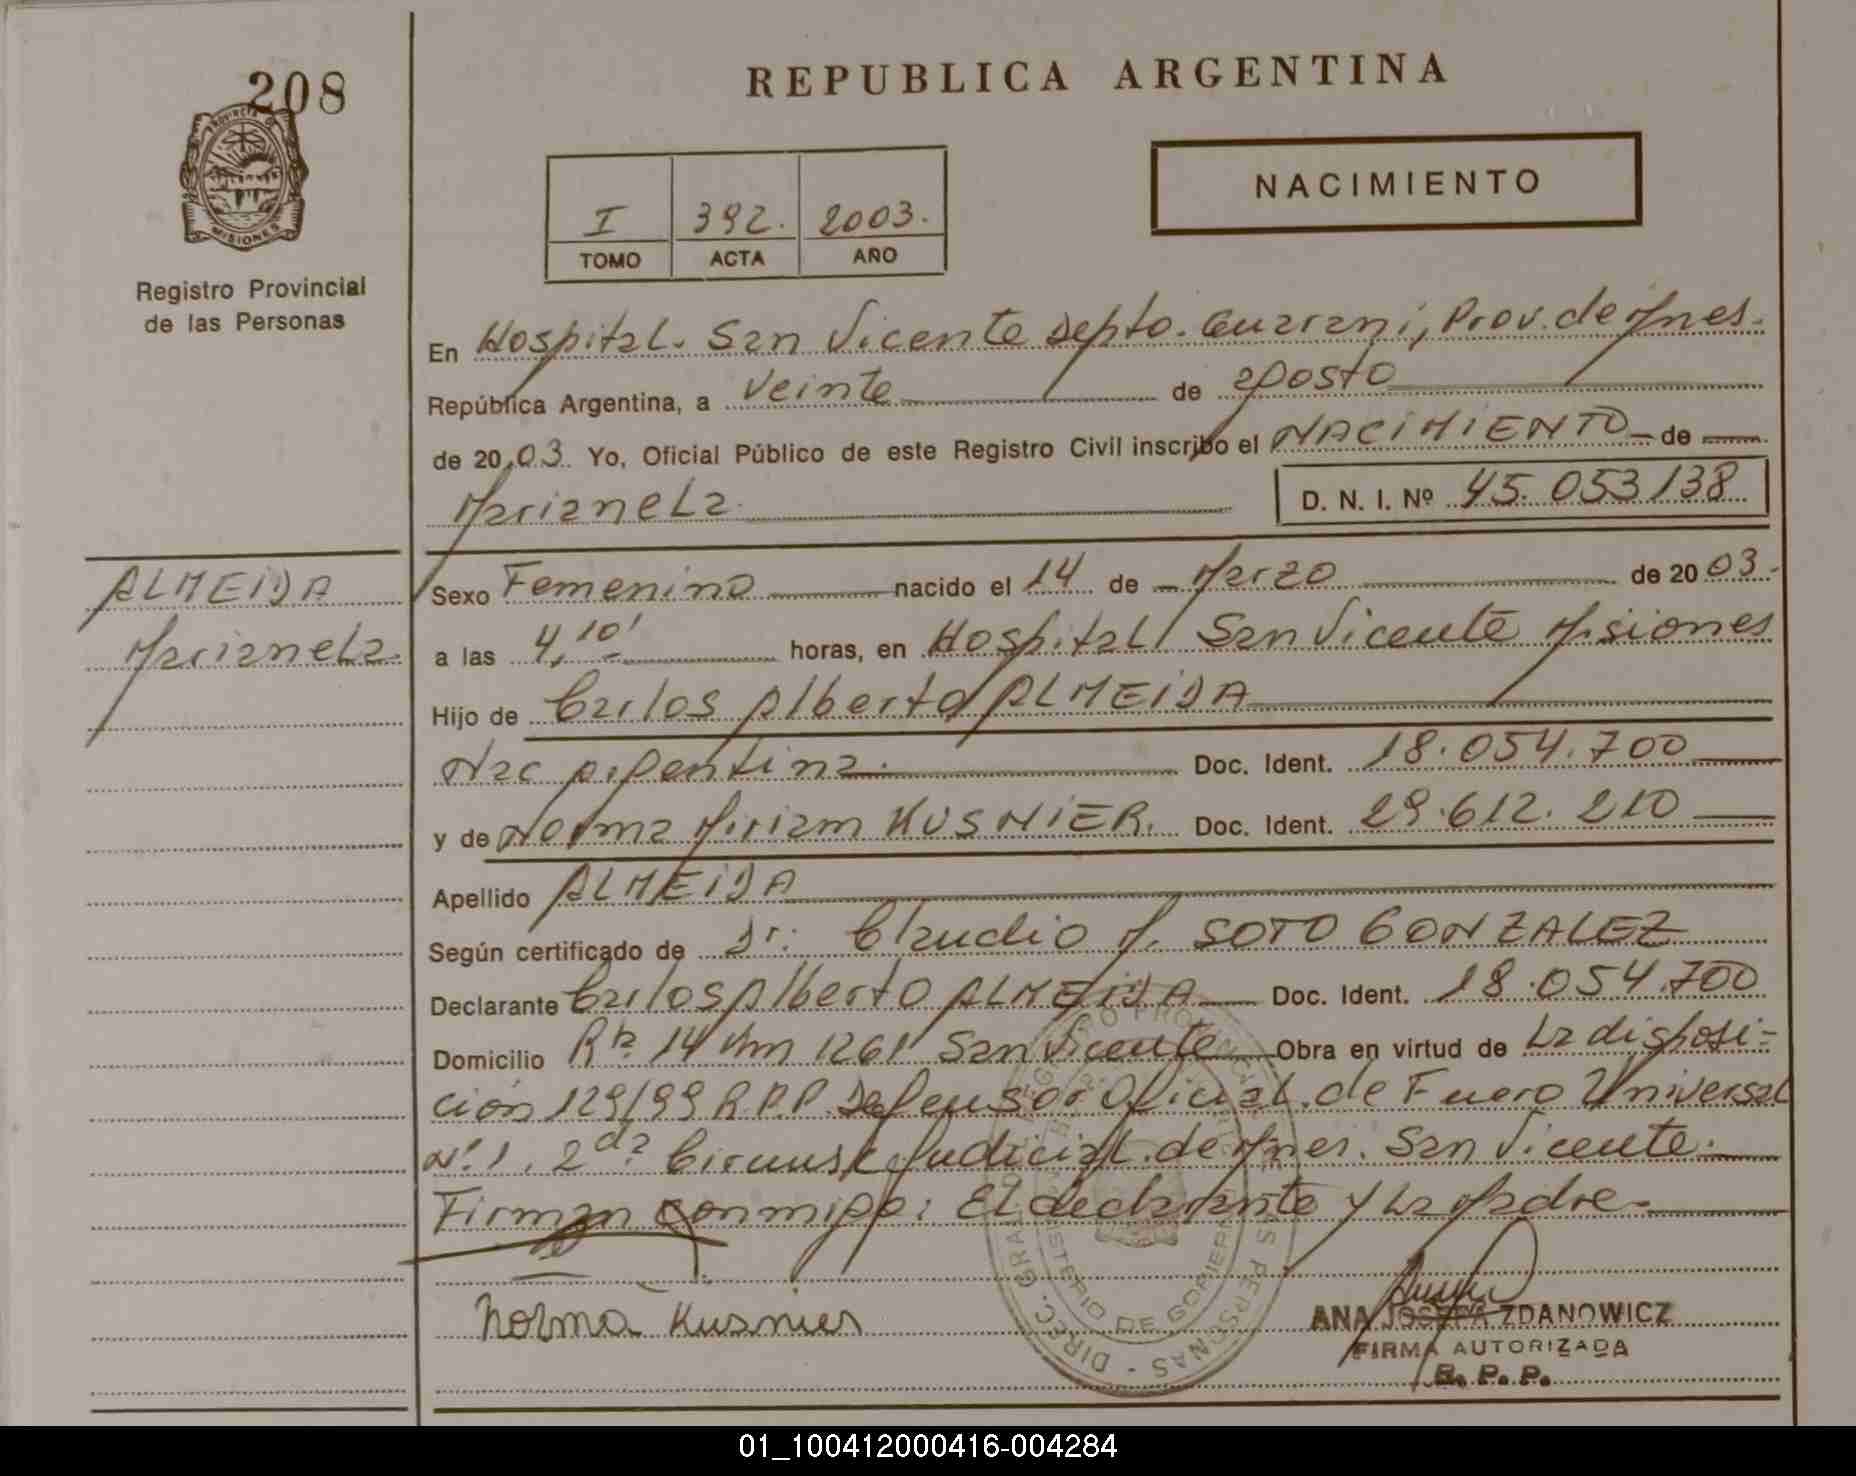 208
PROVINCIA DE
MISIONES
Registro Provincial
de las Personas
REPUBLICA ARGENTINA
I 392. 2003.
TOMO ACTA AÑO
NACIMIENTO
En Hospital. San Vicente Depto. Guarani, Prov. de Mnes.
República Argentina, a veinte de agosto
de 2003. Yo, Oficial Público de este Registro Civil inscribo el NACIMIENTO de
Marianela D. N. I. Nº 45.053138
ALMEIDA
Marianela.
Sexo Femenino nacido el 14 de Marzo de 2003.
a las 4,10' horas, en Hospital San Vicente Misiones
Hijo de Carlos Alberto ALMEIDA
Nac Argentina. Doc. Ident. 18.054.700
y de Norma Miriam KUSNIER. Doc. Ident. 29.612.210
Apellido ALMEIDA
Según certificado de Dr. Claudio M. SOTO GONZALEZ
Declarante Carlos Alberto ALMEIDA Doc. Ident. 18.054.700
Domicilio Rta. 14 Km 1261 San Vicente Obra en virtud de La disposi=
ción 129/99 R.P.P. Defensor Oficial. de Fuero Universal
Nº 1. 2da Circunsc Judicial. de Mnes. San Vicente.
Firman conmigo: El declarante y La Madre.
Norma Kusnier
DIREC. GRAL. REGISTRO PROVINCIAL DE LAS PERSONAS
MINISTERIO DE GOBIERNO
ANA JOSEFA ZDANOWICZ
FIRMA AUTORIZADA
R. P. P.
01_100412000416-004284